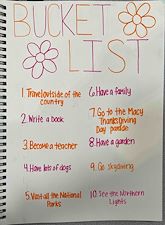 BUCKET
LIST
1. Travel outside of the
country
2. Write a book
3. Become a teacher
4. Have lots of dogs
5. Visit all the National
Parks
6. Have a family
7. Go to the Macy
Thanksgiving
Day parade
8. Have a garden
9. Go Skydiving
10. See the Northern
Lights